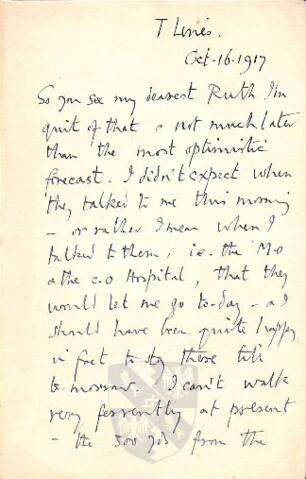 T Lines.
Oct. 16. 1917
So you see my dearest Ruth I'm
quit of that & not much later
than the most optimistic
forecast. I didn't expect when
they talked to me this morning
- or rather I mean when I
talked to them, i.e. the M.O
& the C.O Hospital, that they
would let me go to-day - & I
should have been quite happy
in fact to stay there till
to-morrow. I can't walk
very fervently at present
- the 300 yds from the